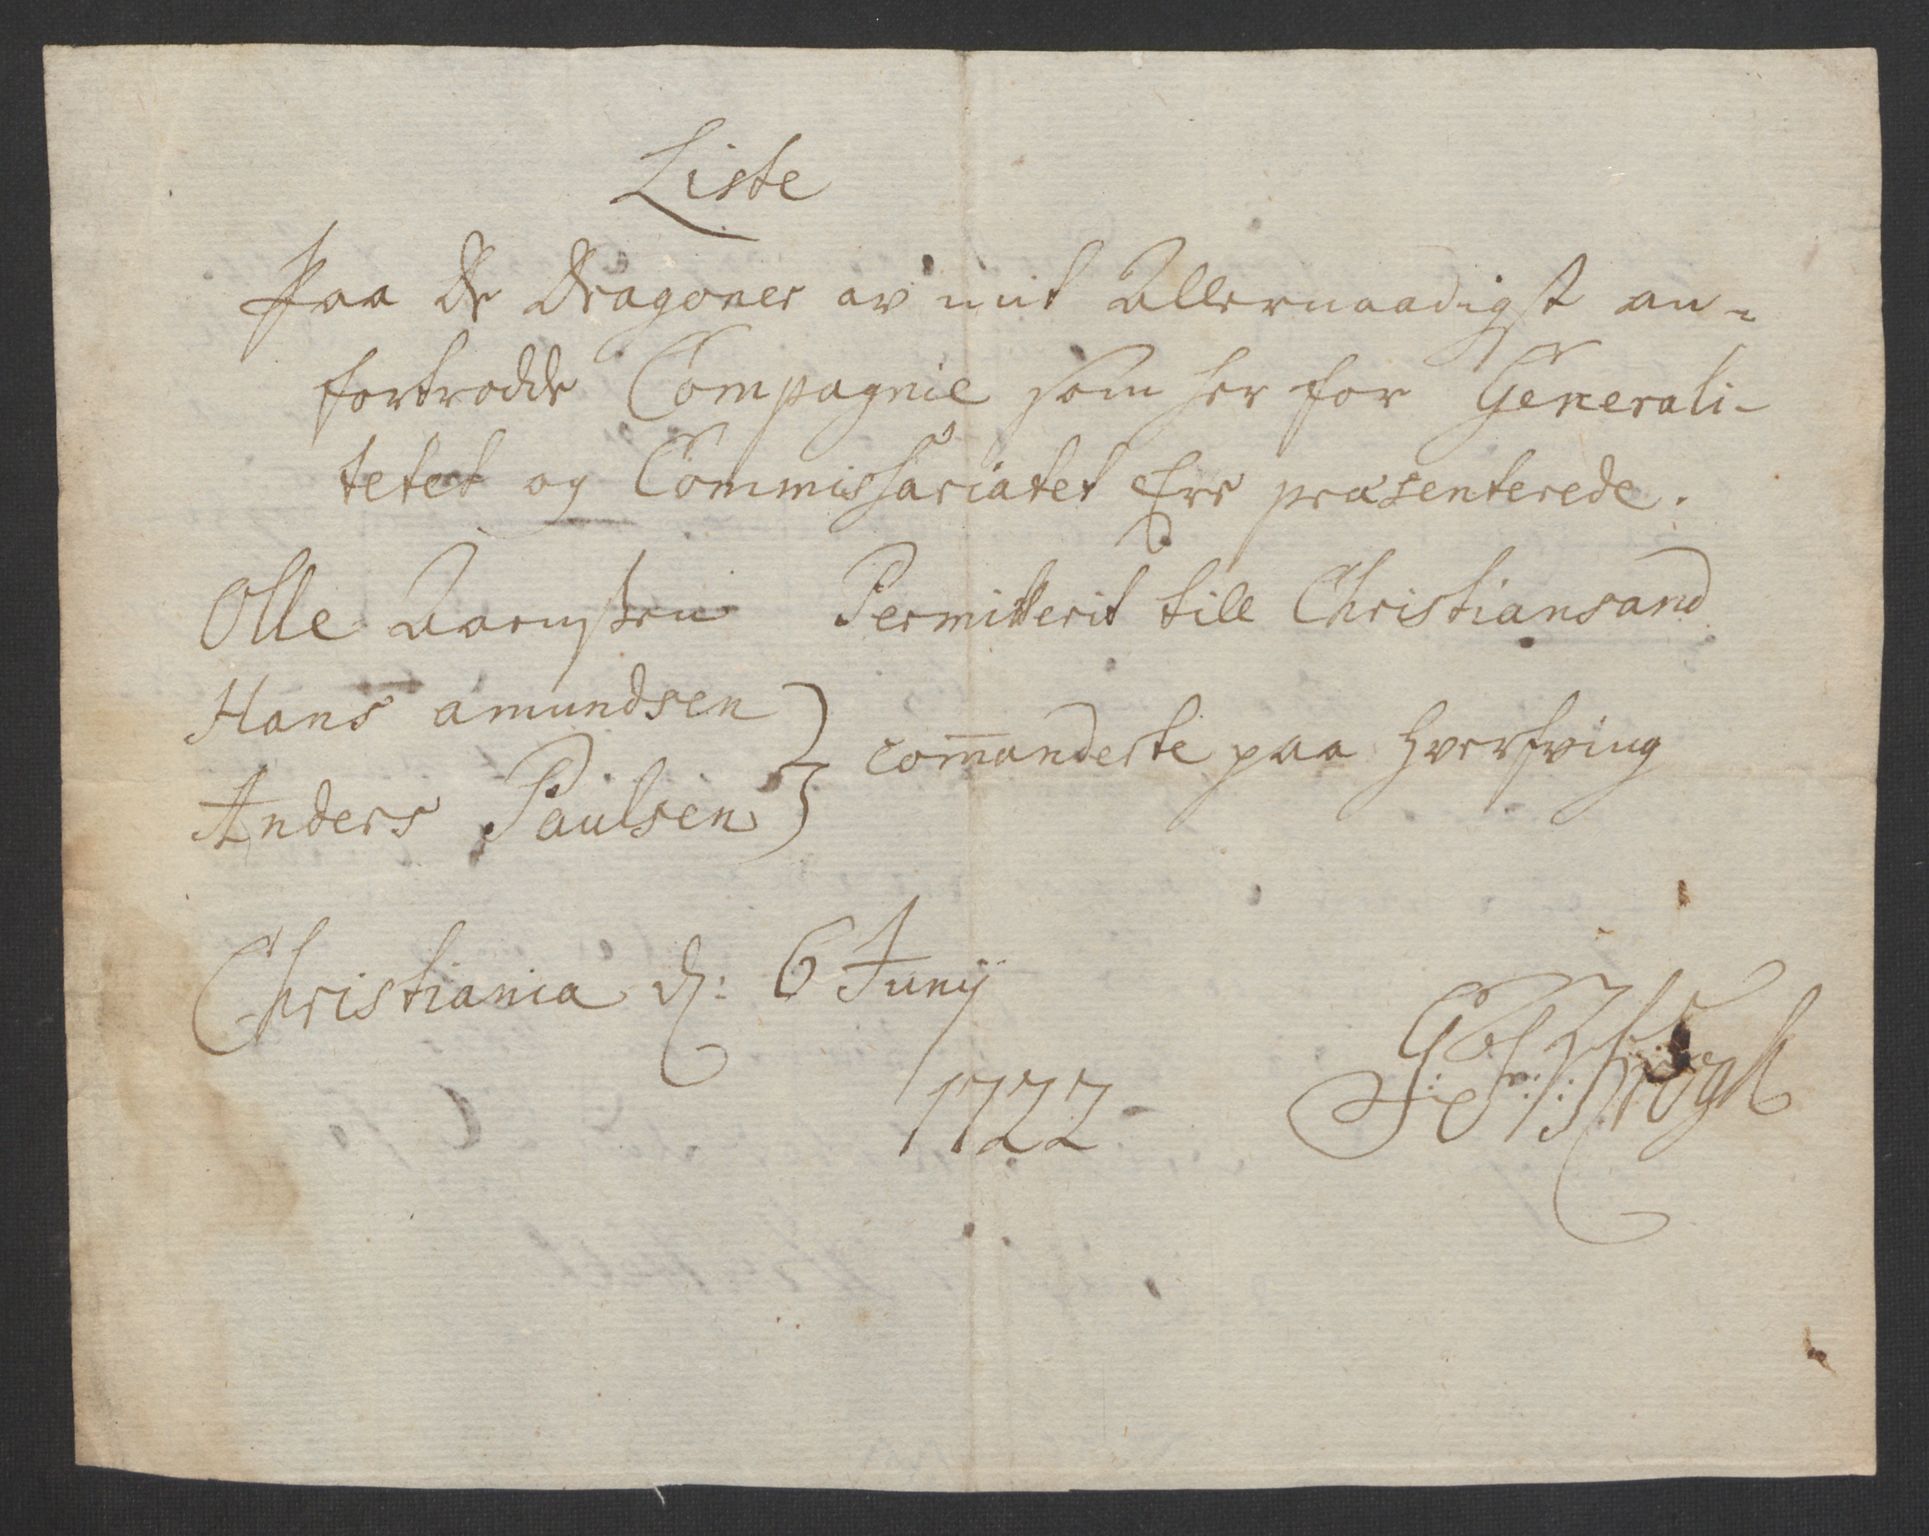 Liste
Paa de dragoner av mit Allernaadigst an-
fortrodde Compagnie som her for Generali-
tetet og Commissariatet Ere præsenterede.
Olle Permitterit till Christiansand
Hans amundsen
Anders Paulsen } com̄anderte paa Hverfving
Christiania d: 6 Junij
1722
Krogh